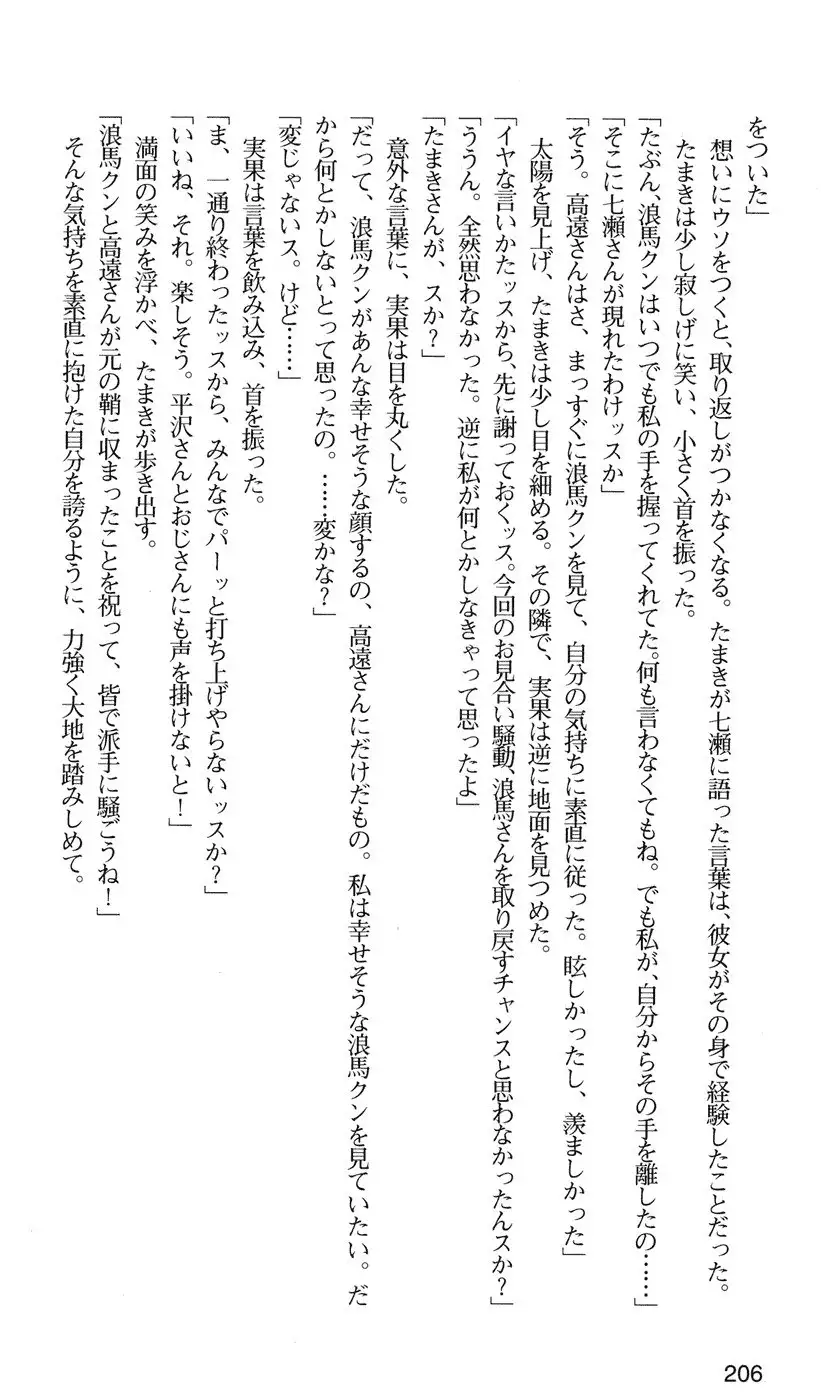 をついた」
　想いにウソをつくと、取り返しがつかなくなる。たまきが七瀬に語った言葉は、彼女がその身で経験したことだった。
　たまきは少し寂しげに笑い、小さく首を振った。
「たぶん、浪馬クンはいつでも私の手を握ってくれてた。何も言わなくてもね。でも私が、自分からその手を離したの……」
「そこに七瀬さんが現れたわけッスか」
「そう。高遠さんはさ、まっすぐに浪馬クンを見て、自分の気持ちに素直に従った。眩しかったし、羨ましかった」
　太陽を見上げ、たまきは少し目を細める。その隣で、実果は逆に地面を見つめた。
「イヤな言いかたッスから、先に謝っておくッス。今回のお見合い騒動、浪馬さんを取り戻すチャンスと思わなかったんスか？」
「ううん。全然思わなかった。逆に私が何とかしなきゃって思ったよ」
「たまきさんが、スか？」
　意外な言葉に、実果は目を丸くした。
「だって、浪馬クンがあんな幸せそうな顔するの、高遠さんにだけだもの。私は幸せそうな浪馬クンを見ていたい。だ
から何とかしないとって思ったの。……変かな？」
「変じゃないス。けど……」
　実果は言葉を飲み込み、首を振った。
「ま、一通り終わったッスから、みんなでパーッと打ち上げやらないッスか？」
「いいね、それ。楽しそう。平沢さんとおじさんにも声を掛けないと！」
　満面の笑みを浮かべ、たまきが歩き出す。
「浪馬クンと高遠さんが元の鞘に収まったことを祝って、皆で派手に騒ごうね！」
　そんな気持ちを素直に抱けた自分を誇るように、力強く大地を踏みしめて。
206